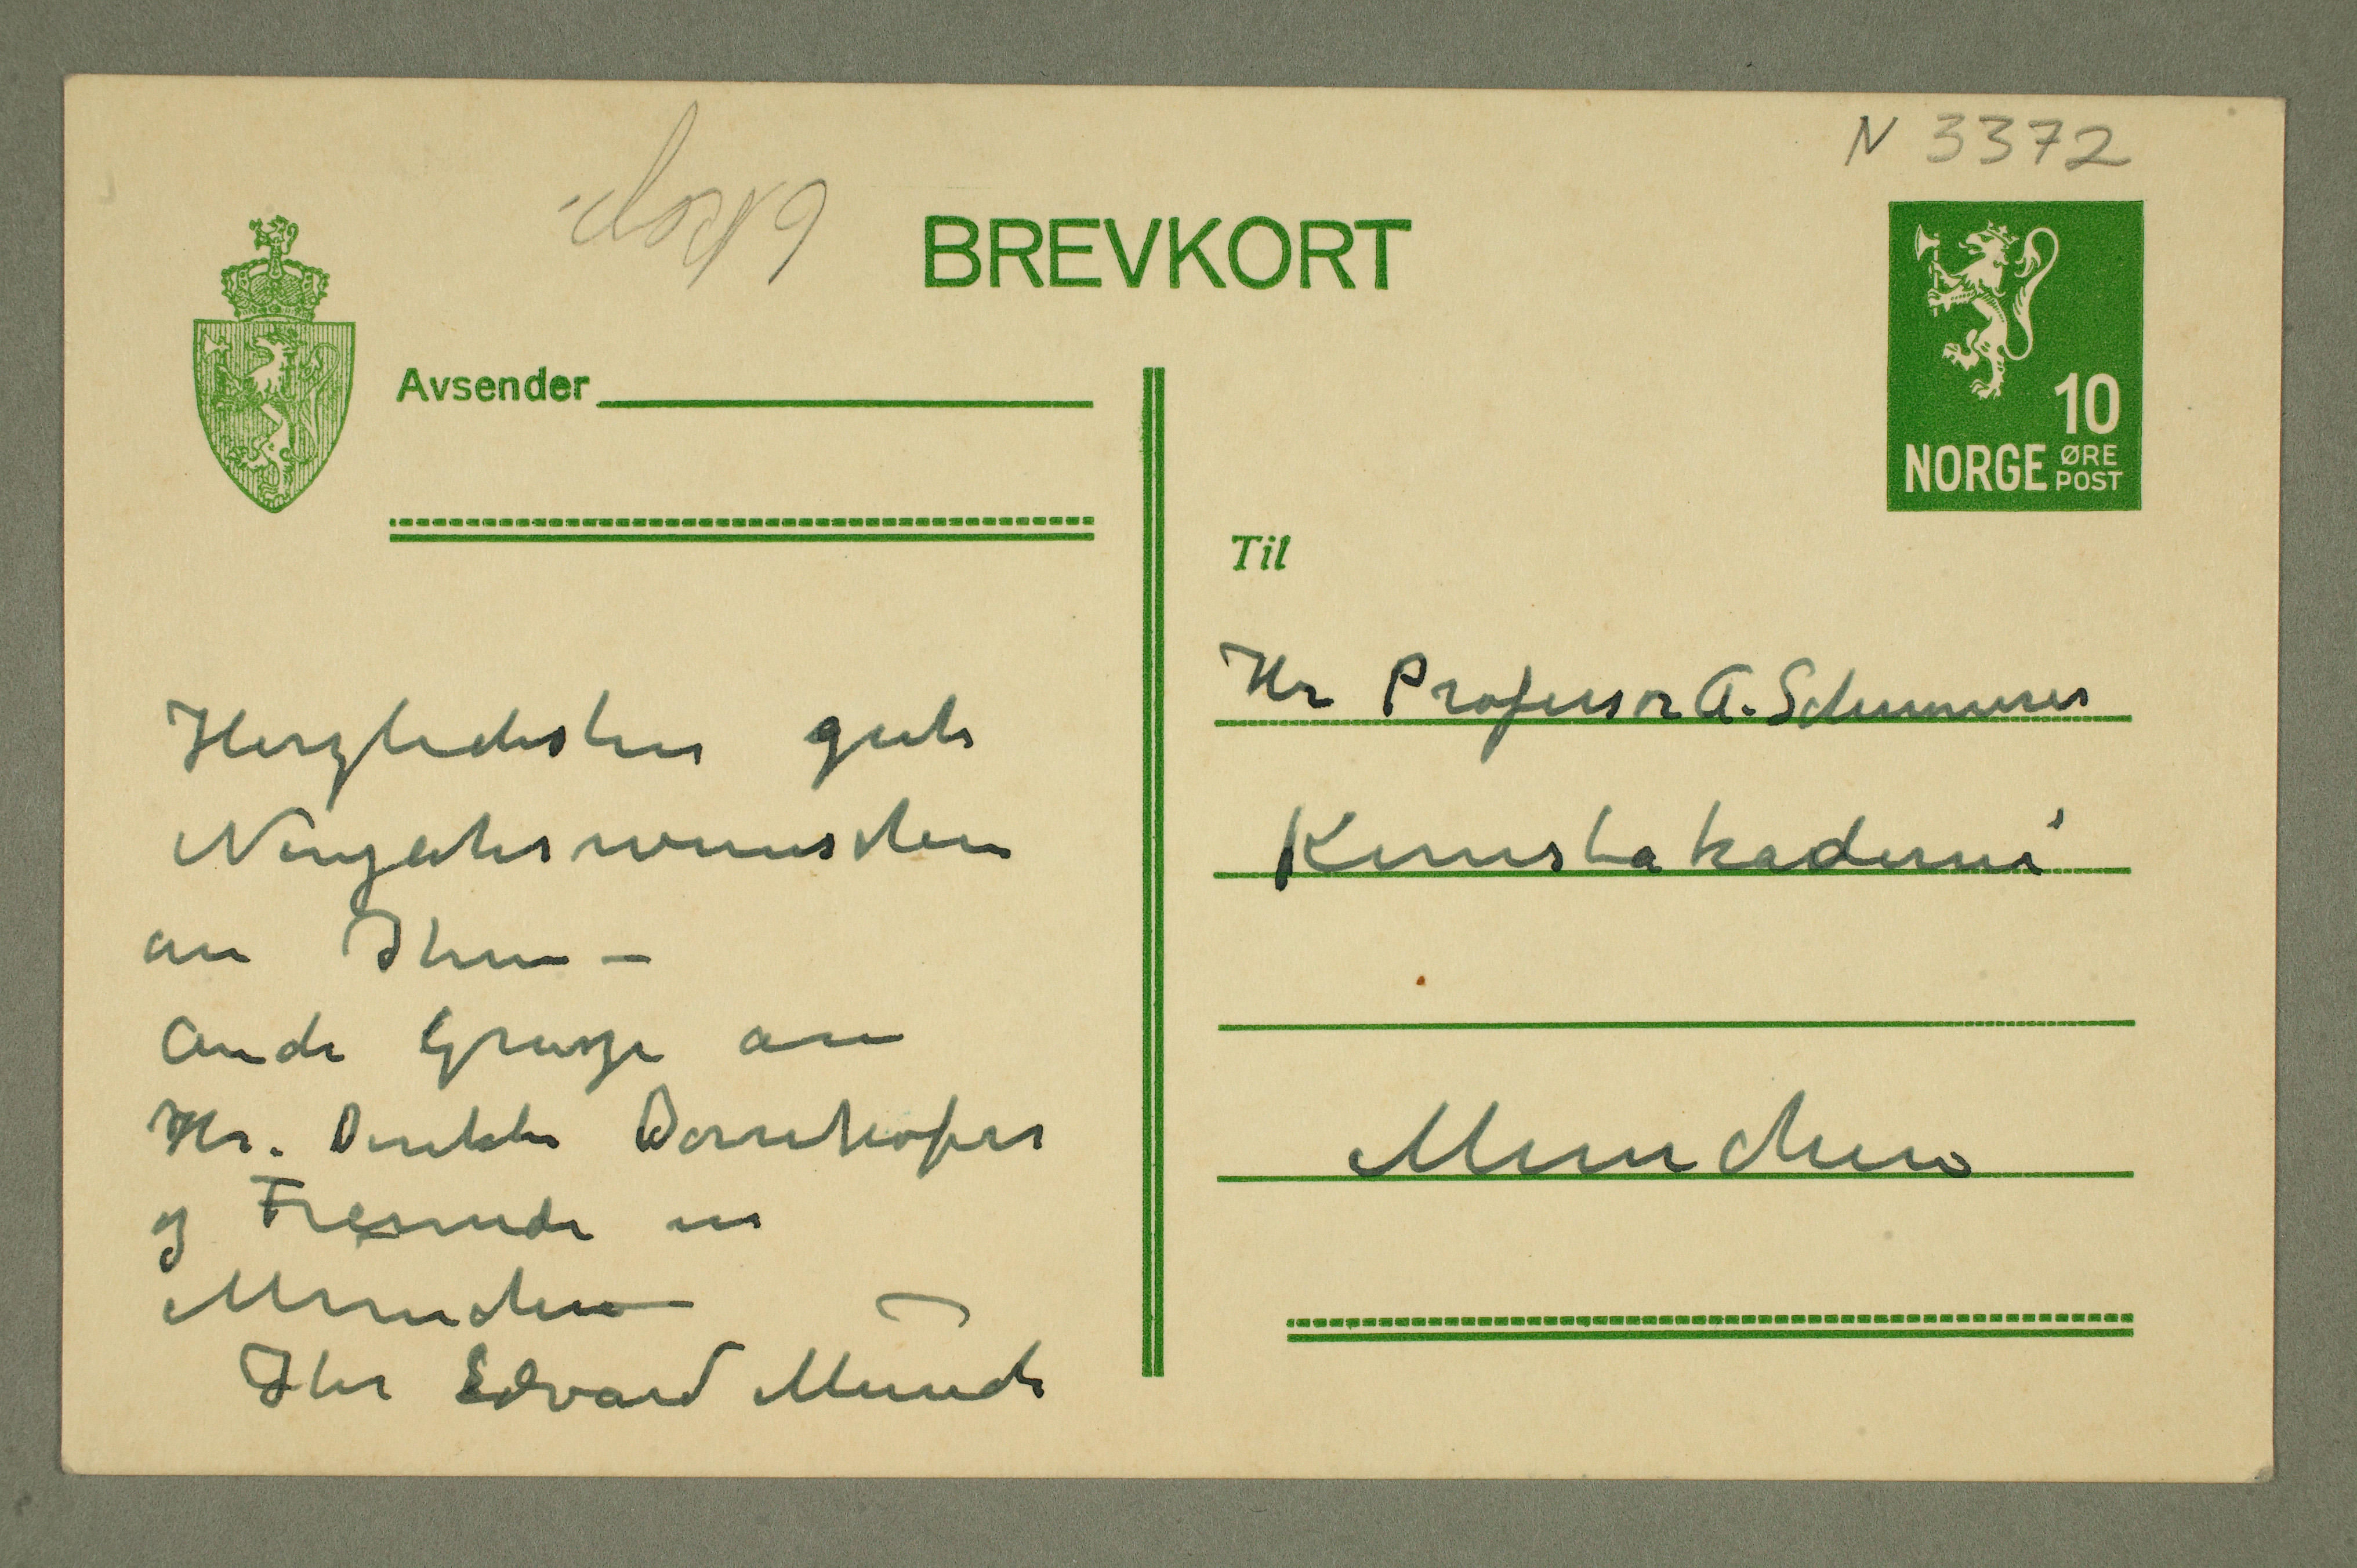 N 3372
BREVKORT
Avsender
10
NORGE ØRE
POST
Til
Hr Professor A. Schinnerer
Kunstakademi
Munchen
Herzlichsten gute
Neujahrswunschen
an Ihnen –
Auch Grusze an
Hr. Direktor Dornhofer
og Freunde in
Munchen –
Ihr Edvard Munch